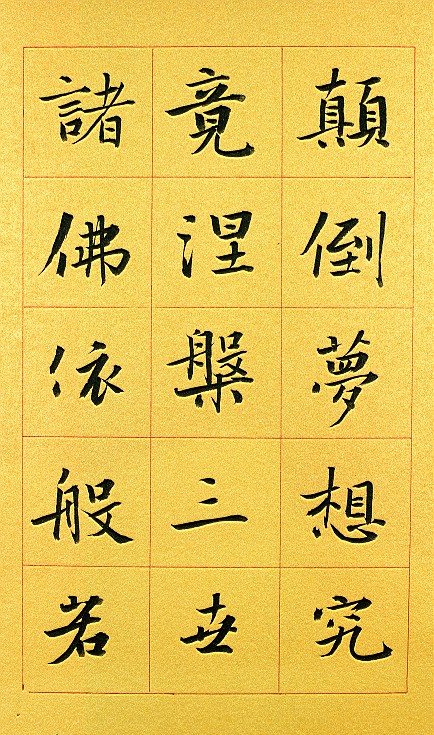 顛倒夢想究
竟涅槃三世
諸佛依般若